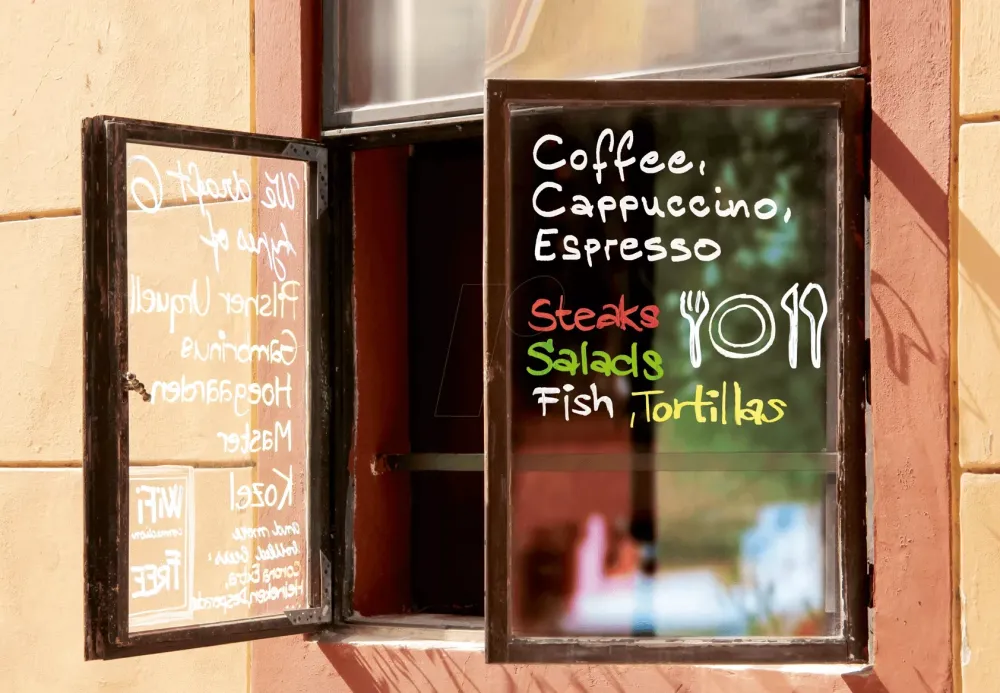 We draft 6
types of
Pilsner Urquell
Gambrinus
Hoegaarden
Master
Kozel
and more
bottled beers:
Corona Extra,
Heineken, Desperado
WiFi
FREE
Coffee,
Cappuccino,
Espresso
Steaks
Salads
Fish ,Tortillas